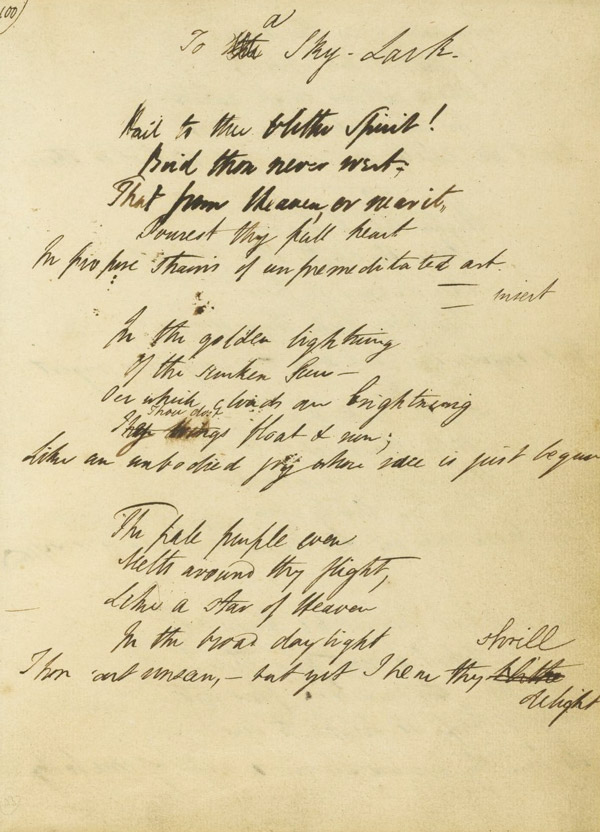 100)
To the a Sky-Lark.
Hail to thee blithe Spirit!
Bird thou never wert,
That from Heaven, or near it,
Pourest thy full heart
In profuse strains of unpremeditated art.
insert
In the golden lightning
Of the sunken Sun—
Oer which clouds are brightning
Thou dost
float & run;
Like an unbodied joy whose race is just begun
The pale purple even
Melts around thy flight,
Like a star of Heaven
In the broad daylight
shrill
Thou art unseen,— but yet I hear thy blithe
delight